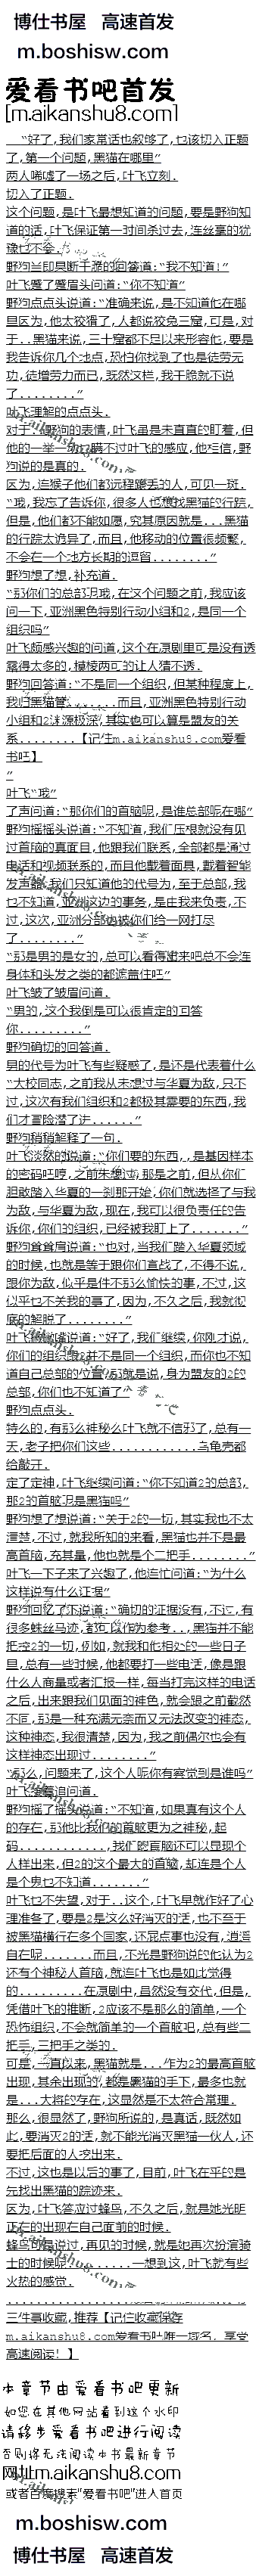 博仕书屋 高速首发
m.boshisw.com
爱看书吧首发
[m.aikanshu8.com]
“好了,我们家常话也叙够了,也该切入正题
了,第一个问题,黑猫在哪里”
两人唏嘘了一场之后,叶飞立刻.
切入了正题.
这个问题,是叶飞最想知道的问题,要是野狗知
道的话,叶飞保证第一时间杀过去,连丝毫的犹
豫也不会.
野狗当即果断干脆的回答道:“我不知道!”
叶飞蹙了蹙眉头问道:“你不知道”
野狗点点头说道:“准确来说,是不知道他在哪
里因为,他太狡猾了,人都说狡兔三窟,可是,对
于..黑猫来说,三十窟都不足以来形容他,要是
我告诉你几个地点,恐怕你找到了也是徒劳无
功,徒增劳力而已,既然这样,我干脆就不说
了........”
叶飞理解的点点头.
对于..野狗的表情,叶飞虽是未直直的盯着,但
他的一举一动,瞒不过叶飞的感应,他相信,野
狗说的是真的.
因为,连猴子他们都远程撤丢的人,可见一斑.
“哦,我忘了告诉你,很多人也想找黑猫的行踪,
但是,他们都不能如愿,究其原因就是...黑猫
的行踪太诡异了,而且,他移动的位置很频繁,
不会在一个地方长期的逗留........”
野狗想了想,补充道.
“那你们的总部呢哦,在这个问题之前,我应该
问一下,亚洲黑色特别行动小组和2,是同一个
组织吗”
叶飞颇感兴趣的问道,这个在原剧里可是没有透
露得太多的,模棱两可的让人猜不透.
野狗回答道:“不是同一个组织,但某种程度上,
我归黑猫管.......而且,亚洲黑色特别行动
小组和2渊源极深,其实也可以算是盟友的关
系........【记住m.aikanshu8.com爱看
书吧】
”
叶飞“哦”
了声问道:“那你们的首脑呢,是谁总部呢在哪”
野狗摇摇头说道:“不知道,我们压根就没有见
过首脑的真面目,他跟我们联系,全部都是通过
电话和视频联系的,而且他戴着面具,戴着智能
发声器,我们只知道他的代号为,至于总部,我
也不知道,亚洲这边的事务,是庄我来负责,不
过,这次,亚洲分部也被你们给一网打尽
了........”
“那是男的是女的,总可以看得出来吧总不会连
身体和头发之类的都遮盖住吧”
叶飞皱了皱眉问道.
“男的,这个我倒是可以很肯定的回答
你.........”
野狗确切的回答道.
男的代号为叶飞有些疑惑了,是还是代表着什么
“大校同志,之前我从未想过与华夏为敌,只不
过,这次有我们组织和2都极其需要的东西,我
们才冒险潜了进......”
野狗稍稍解释了一句.
叶飞淡然的说道:“你们要的东西,,是基因样本
的密码吧哼,之前未想过,那是之前,但从你们
胆敢踏入华夏的一刹那开始,你们就选择了与我
为敌,与华夏为敌,现在,我可以很负责任的告
诉你,你们的组织,已经被我盯上了.......”
野狗耸耸肩说道:“也对,当我们踏入华夏领域
的时候,也就是等于跟你们宣战了,不得不说,
跟你为敌,似乎是件不那么愉快的事,不过,这
似乎也不关我的事了,因为,不久之后,我就彻
底的解脱了.........”
“好了,我们继续,你刚才说,
你们的组织跟2并不是同一个组织,而你也不知
道自己总部的位置,那就是说,身为盟友的2的
总部,你们也不知道了”
野狗点点头.
特么的,有那么神秘么叶飞就不信邪了,总有一
天,老子把你们这些............乌龟壳都
给敲开.
定了定神,叶飞继续问道:“你不知道2的总部,
那2的首脑呢是黑猫吗”
野狗想了想说道:“关于2的一切,其实我也不太
清楚,不过,就我所知的来看,黑猫也并不是最
高首脑,充其量,他也就是个二把手........”
叶飞一下子来了兴趣了,他连忙问道:“为什么
这样说有什么证据”
野狗回忆了下说道:“确切的证据没有,不过,有
很多蛛丝马迹,都可以作为参考..,黑猫并不能
把控2的一切,例如,就我和他相处的一些日子
里,总有一些时候,他都要打一些电话,像是跟
什么人商量或者汇报一样,每当打完这样的电话
之后,出来跟我们见面的神色,就会跟之前截然
不同,那是一种充满无奈而又无法改变的神态,
这种神态,我很清楚,因为,我之前偶尔也会有
这样神态出现过........”
“那么,问题来了,这个人呢你有察觉到是谁吗”
叶飞紧着追问道.
野狗摇了摇头说道:“不知道,如果真有这个人
的存在,那他比我们的首脑更为之神秘,起
码............,我们的首脑还可以显现个
人样出来,但2的这个最大的首脑,却连是个人
是个鬼也不知道.......”
叶飞也不失望,对于..这个,叶飞早就作好了心
理准备了,要是2是这么好消灭的话,也不至于
被黑猫横行在多个国家,还屁点事也没有,逍遥
自在呢.......而且,不光是野狗说的他认为2
还有个神秘人首脑,就连叶飞也是如此觉得
的.........在原剧中,虽然没有交代,但是,
凭借叶飞的推断,2应该不是那么的简单,一个
恐怖组织,不会就简单的一个首脑吧,总有些二
把手,三把手之类的.
可是,一直以来,黑猫就是...作为2的最高首脑
出现,其余出现的,都是黑猫的手下,最多也就
是...大将的存在,这显然是不太符合常理.
那么,很显然了,野狗所说的,是真话,既然如
此,要消灭2的话,就不能光消灭黑猫一伙人,还
要把后面的人挖出来.
不过,这也是以后的事了,目前,叶飞在乎的是
先找出黑猫的踪迹来.
因为,叶飞答应过蜂鸟,不久之后,就是她光明
正在的出现在自己面前的时候.
蜂鸟可是说过,再见的时候,就是她再次扮演骑
士的时候呢........一想到这,叶飞就有些
火热的感觉.
三件事收藏,推荐【记住收藏保存
m.aikanshu8.com爱看书吧唯一域名,享受
高速阅读!】
本章节由爱看书吧更新
如您在其他网站看到这个水印
请移步爱看书吧进行阅读
否则将无法阅读本书最新章节
网址m.aikanshu8.com
或者百度搜索“爱看书吧”进入首页
m.boshisw.com
博仕书屋 高速首发